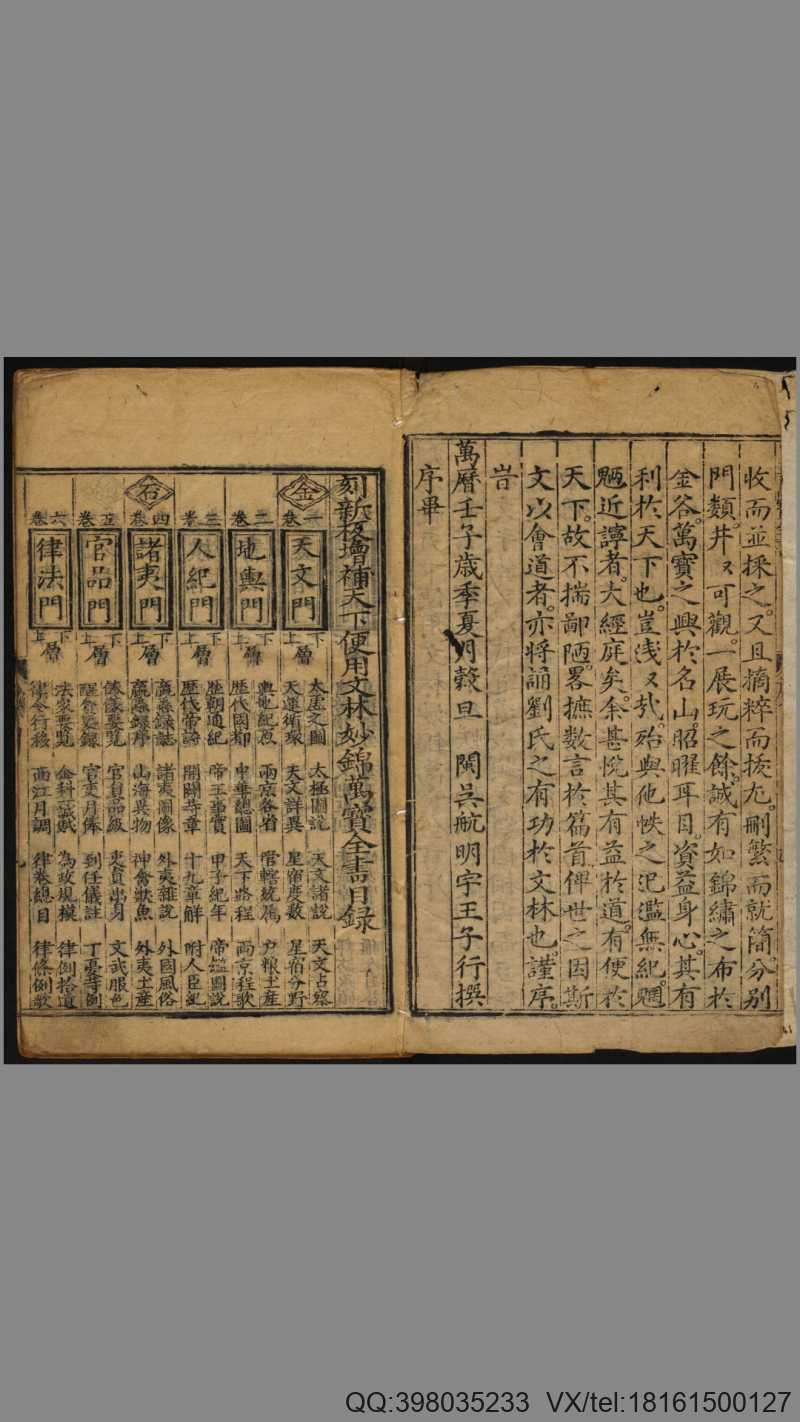 收而並採之。又且摘粹而拔尤。刪繁而就簡。分別
門類。井〻可觀。一展玩之餘。誠有如錦繡之布於
金谷。萬寶之興於名山。昭曜耳目。資益身心。其有
利於天下也。豈浅〻㢤。殆與他帙之汜濫無紀。
魎近謗者。大經庭矣。余甚悅其有益於道。有便於
天下。故不揣鄙陋。畧摭数言於篇首俾世之因斯
文以會道者。亦将誦劉氏之有功於文林也。謹序。
旹
萬曆壬子歳季夏月榖旦 閩吳航明宇王子行撰
序畢
刻新板增補天下便用文林妙錦萬寶全書目録
金
一卷
天文門
上下層
太虛文圖 太極圖說 天文諸說 天文占察
天運循環 天文詳異 星宿度数 星宿分野
二卷
地輿門
上下層
輿地紀原 兩京各省 管轄統屬 户粮土産
歷代國都 中華總圖 天下路程 兩京程歌
三卷
人紀門
上下層
歷朝通紀 帝王事實 甲子紀年 帝鑑圖說
歷代帝論 開闢等章 十九章解 附人臣紀
石
四卷
諸夷門
上下層
蠃蟲錄誌 諸夷圖像 外夷雜說 外國風俗
蠃蟲錄序 山海異物 神禽獸魚 外夷土産
五卷
官品門
上下層
僚采要覧 官員品級 吏員出身 文武服色
官吏月俸 到任儀註 丁憂寺例
六卷
律法門
上下層
法家要覧 金科弍賦 為政規模 律例拾遺
律令行移 西江月調 律卷總目 律條例歌
QQ:398035233 VX/tel:18161500127